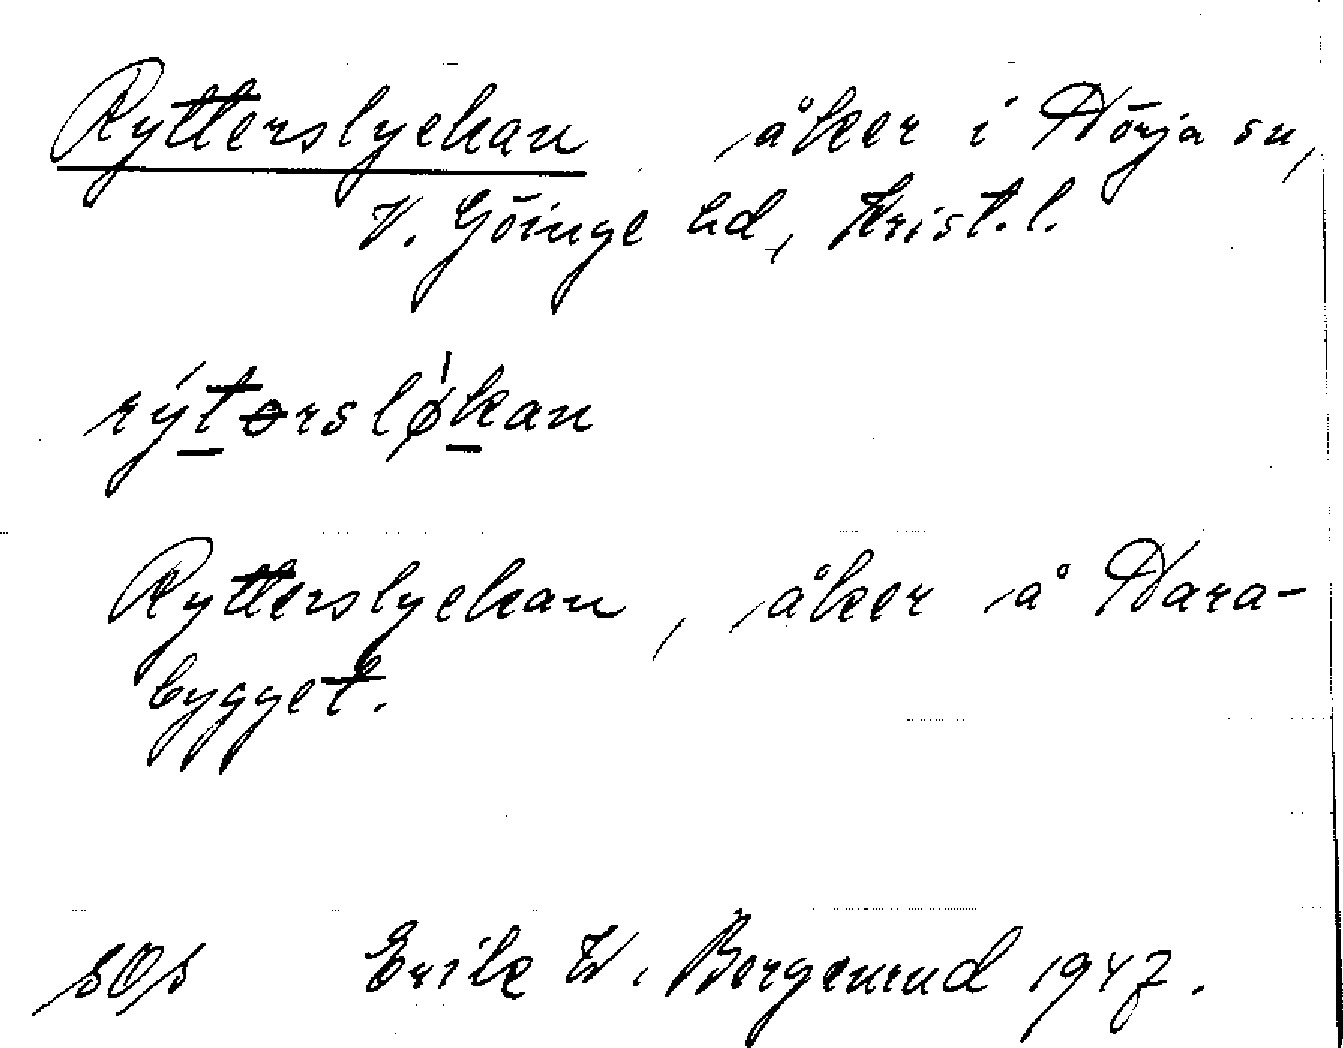 Rytterslyckan åker i Nörja sn,
V. Göinge hd, Krist. l.
rýtərsløkan
Rytterslyckan, åker å Nara-
bygget.
sOs Erik W. Bergenrud 1947.